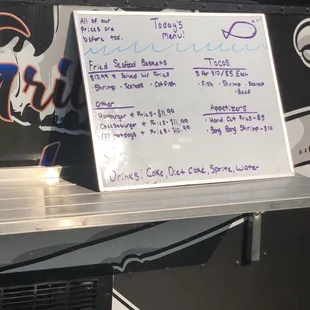 All of our
Prices are
before tax.
Today's
Menu!
Fried Seafood Baskets
$12.99 & Served w/ Fries
Shrimp - Scallops - Catfish
Other
Hamburger + Fries - $11.99
Cheeseburger + Fries - $11.99
(2) Hotdogs + Fries - $10.99
Tacos
3 for $12/$5 Each
Fish - Shrimp - Scallops
Beef
Appetizers
Hand Cut Fries - $5
Bang Bang Shrimp - $10
Drinks: Coke, Diet Coke, Sprite, Water
Gril